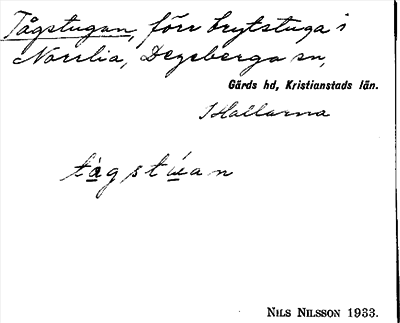 Tågstugan, förr brytstuga i
Norrlia, Degeberga sn,
Gärds hd, Kristianstads län.
I Hallarna
tàgstúan
NILS NILSSON 1933.